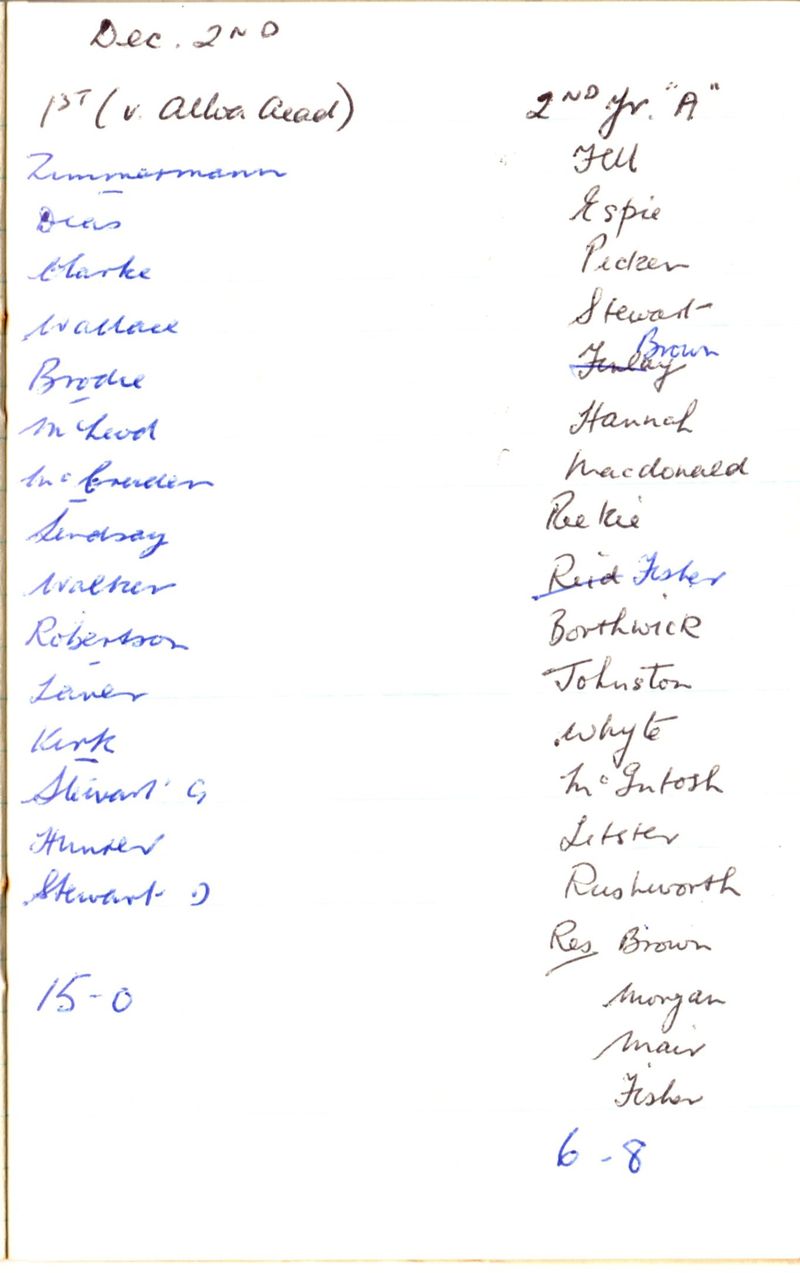 Dec. 2ND
1ST (v. Alloa Acad)
Zimmermann
Deas
Clarke
Wallace
Brodie
McLeod
Lindsay
Walker
Robertson
Laver
Kirk
Stewart G
Hunter
Stewart D
15-0
2ND Yr. "A"
Fell
Espie
Picken
Stewart
Finlay Brown
Hannah
Macdonald
Reekie
Reid Fisher
Borthwick
Johnston
Whyte
McIntosh
Letster
Rushworth
Res Brown
Morgan
Mair
Fisher
6-8